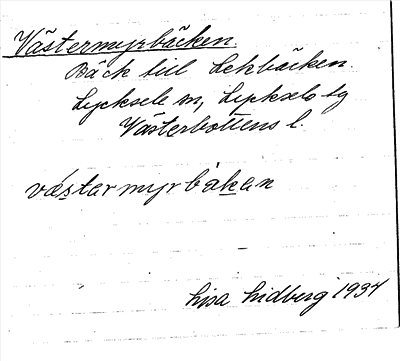 Västermyrbäcken.
Bäck till Lekbäcken.
Lycksele sn, Lycksele tg
Västerbottens l.
västarmyrbäkan
Lisa Lidberg 1934